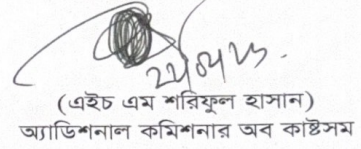 (এইচ এম শরিফুল হাসান)
অ্যাডিশনাল কমিশনার অব কাষ্টমস